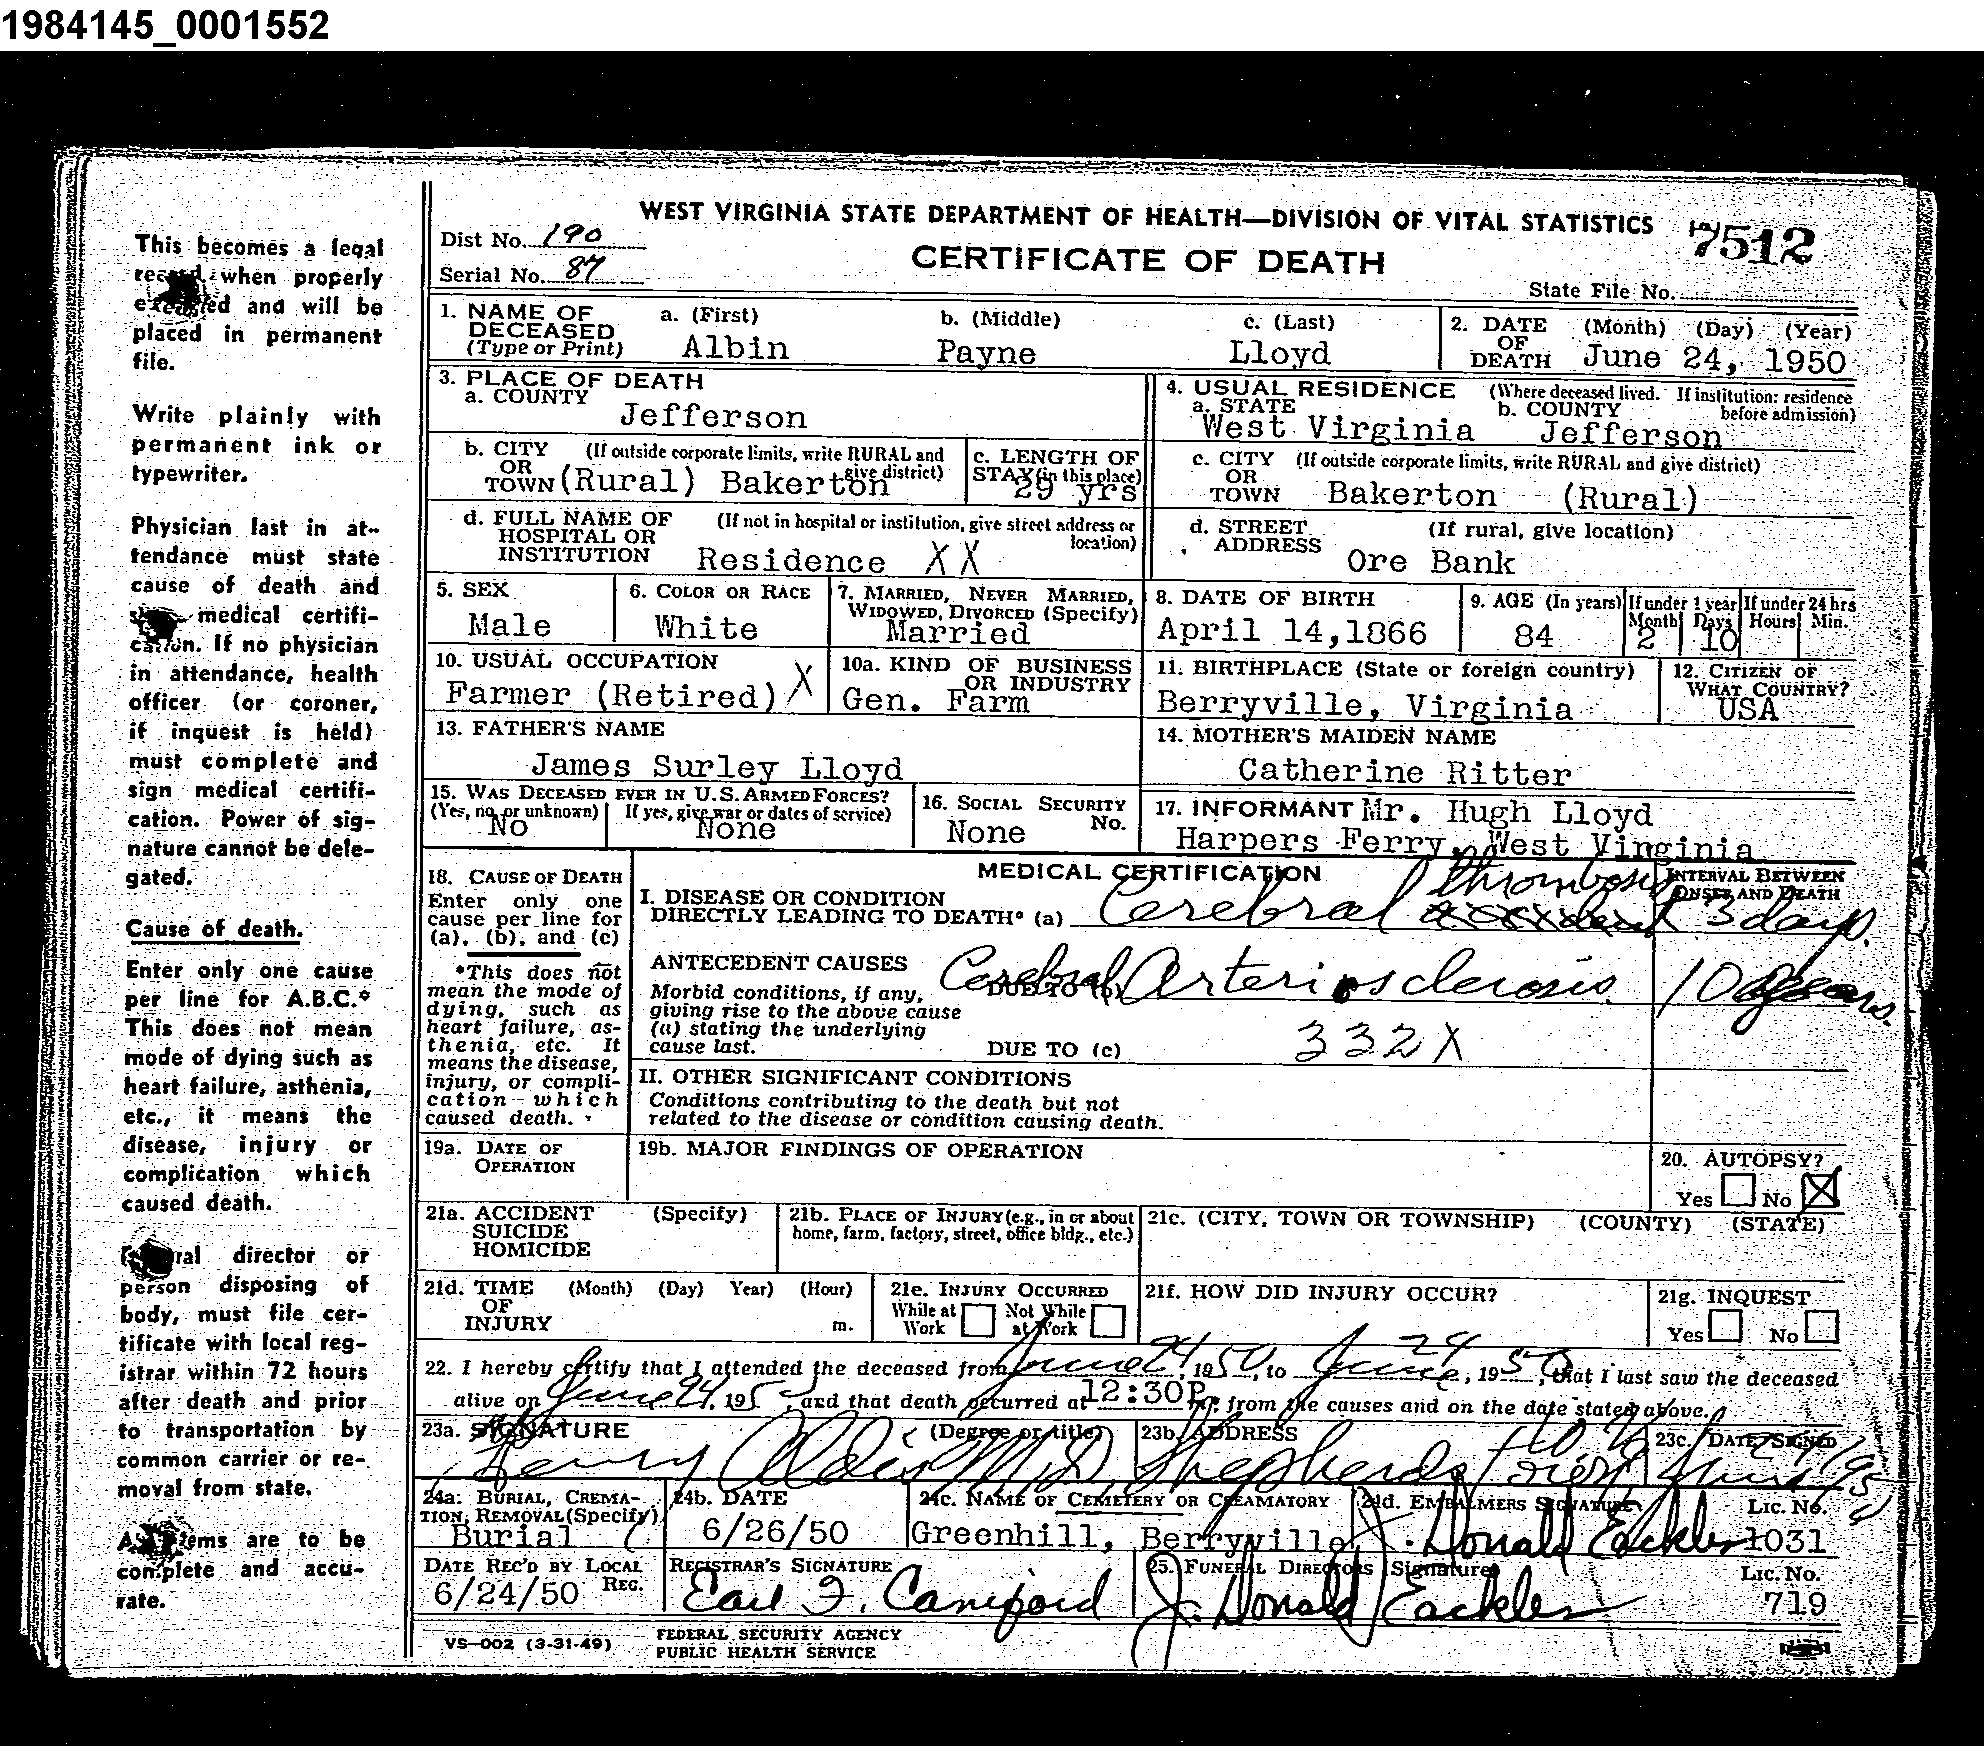 1984145_0001552
WEST VIRGINIA STATE DEPARTMENT OF HEALTH—DIVISION OF VITAL STATISTICS
CERTIFICATE OF DEATH
7512
Dist No. 190
Serial No. 87
State File No.
This becomes a legal
record when properly
executed and will be
placed in permanent
file.
Write plainly with
permanent ink or
typewriter.
Physician last in at-
tendance must state
cause of death and
medical certifi-
cation. If no physician
in attendance, health
officer (or coroner,
if inquest is held)
must complete and
sign medical certifi-
cation. Power of sig-
nature cannot be dele-
gated.
Cause of death.
Enter only one cause
per line for A.B.C.*
This does not mean
mode of dying such as
heart failure, asthenia,
etc., it means the
disease, injury or
complication which
caused death.
Funeral director or
person disposing of
body, must file cer-
tificate with local reg-
istrar within 72 hours
after death and prior
to transportation by
common carrier or re-
moval from state.
All items are to be
complete and accu-
rate.
1. NAME OF DECEASED (Type or Print) a. (First) Albin b. (Middle) Payne c. (Last) Lloyd
2. DATE OF DEATH (Month) (Day) (Year) June 24, 1950
3. PLACE OF DEATH
a. COUNTY Jefferson
b. CITY OR TOWN (If outside corporate limits, write RURAL and give district) (Rural) Bakerton
c. LENGTH OF STAY (in this place) 29 yrs
d. FULL NAME OF HOSPITAL OR INSTITUTION (If not in hospital or institution, give street address or location) Residence XX
4. USUAL RESIDENCE (Where deceased lived. If institution: residence before admission)
a. STATE West Virginia b. COUNTY Jefferson
c. CITY OR TOWN (If outside corporate limits, write RURAL and give district) Bakerton (Rural)
d. STREET ADDRESS (If rural, give location) Ore Bank
5. SEX Male
6. COLOR OR RACE White
7. MARRIED, NEVER MARRIED, WIDOWED, DIVORCED (Specify) Married
8. DATE OF BIRTH April 14,1866
9. AGE (In years) 84 If under 1 year Month 2 Days 10 If under 24 hrs Hours Min.
10. USUAL OCCUPATION Farmer (Retired) X
10a. KIND OF BUSINESS OR INDUSTRY Gen. Farm
11. BIRTHPLACE (State or foreign country) Berryville, Virginia
12. CITIZEN OF WHAT COUNTRY? USA
13. FATHER'S NAME James Surley Lloyd
14. MOTHER'S MAIDEN NAME Catherine Ritter
15. WAS DECEASED EVER IN U.S. ARMED FORCES? (Yes, no, or unknown) No If yes, give war or dates of service) None
16. SOCIAL SECURITY No. None
17. INFORMANT Mr. Hugh Lloyd
Harpers Ferry, West Virginia
18. CAUSE OF DEATH
Enter only one
cause per line for
(a), (b), and (c)
*This does not
mean the mode of
dying, such as
heart failure, as-
thenia, etc. It
means the disease,
injury, or compli-
cation which
caused death.
MEDICAL CERTIFICATION
INTERVAL BETWEEN ONSET AND DEATH
I. DISEASE OR CONDITION
DIRECTLY LEADING TO DEATH* (a) Cerebral accident thrombosis 3 days.
ANTECEDENT CAUSES
Morbid conditions, if any,
giving rise to the above cause
(a) stating the underlying
cause last.
DUE TO (b) Cerebral Arteriosclerosis 10 years.
DUE TO (c) 332X
II. OTHER SIGNIFICANT CONDITIONS
Conditions contributing to the death but not
related to the disease or condition causing death.
19a. DATE OF OPERATION
19b. MAJOR FINDINGS OF OPERATION
20. AUTOPSY?
Yes No X
21a. ACCIDENT SUICIDE HOMICIDE (Specify)
21b. PLACE OF INJURY (e.g., in or about home, farm, factory, street, office bldg., etc.)
21c. (CITY, TOWN OR TOWNSHIP) (COUNTY) (STATE)
21d. TIME OF INJURY (Month) (Day) Year) (Hour) m.
21e. INJURY OCCURRED While at Work Not While at Work
21f. HOW DID INJURY OCCUR?
21g. INQUEST
Yes No
22. I hereby certify that I attended the deceased from June 24, 1950, to June 24, 1950, that I last saw the deceased
alive on June 24, 195 , and that death occurred at 12:30P m. from the causes and on the date stated above.
23a. SIGNATURE (Degree or title) Henry M.D.
23b. ADDRESS Shepherdstown
23c. DATE SIGNED June
24a. BURIAL, CREMATION, REMOVAL (Specify) Burial
24b. DATE 6/26/50
24c. NAME OF CEMETERY OR CREAMATORY Greenhill, Berryville
24d. EMBALMERS SIGNATURE J. Donald Eackles Lic. No. 1031
DATE REC'D BY LOCAL REG. 6/24/50
REGISTRAR'S SIGNATURE Earl F. Caniford
25. FUNERAL DIRECTORS (Signature) J. Donald Eackles Lic. No. 719
VS—002 (3-31-49)
FEDERAL SECURITY AGENCY
PUBLIC HEALTH SERVICE